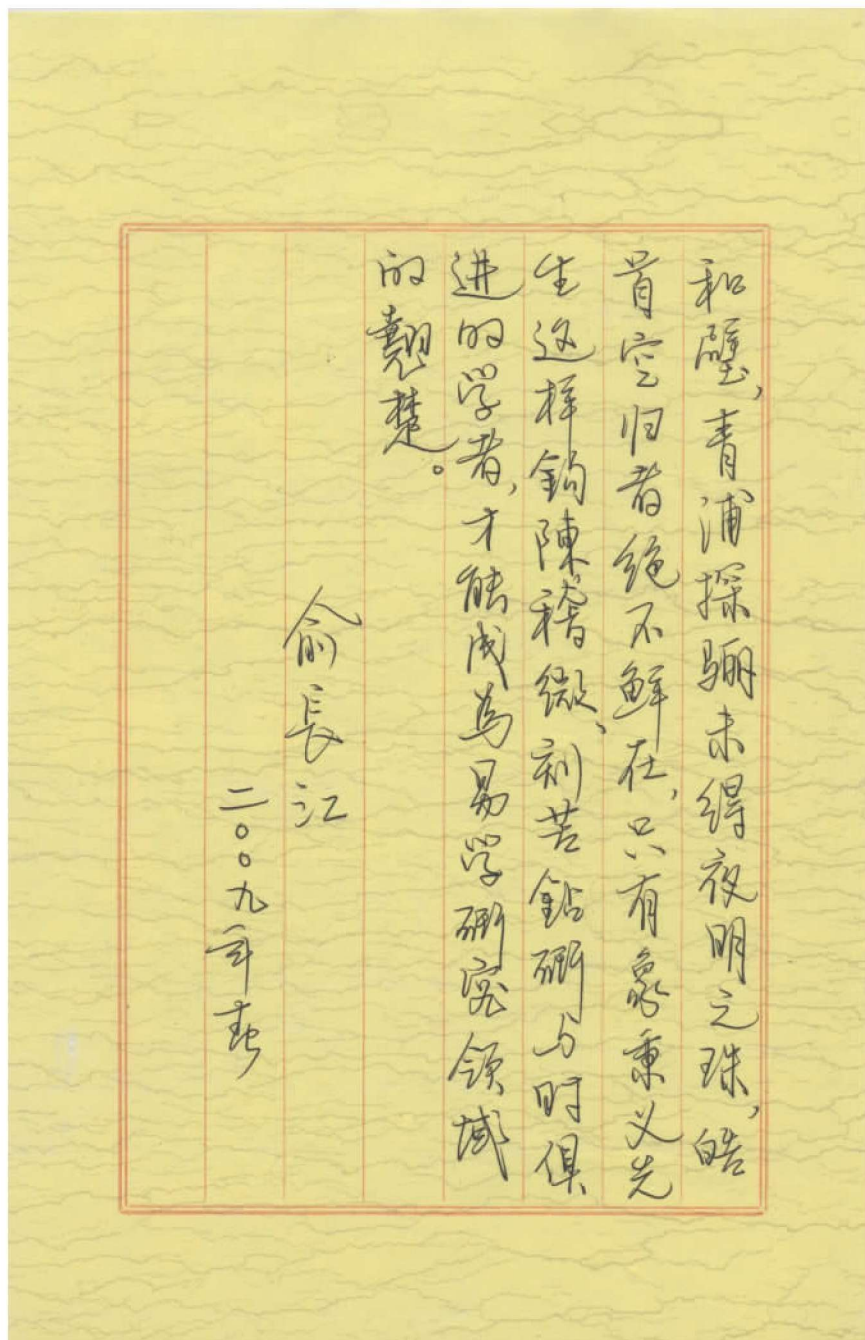 和璧，青浦探骊未得夜明之珠，皓
首空归者绝不鲜在，只有象秉义先
生这样钩陳稽微、刻苦鉆研与时俱
进的学者，才能成为易学研究领域
的翘楚。
俞長江
二〇〇九年春